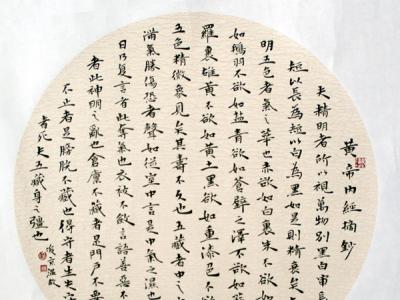 黄帝内經摘鈔
夫精明者所以視萬物別黑白審長
短以長為短以白為黑如是則精衰矣
明五色者氣之華也赤欲如白裹朱不欲
如鵝羽不欲如盐青欲如蒼璧之澤不欲如
羅裹雄黄不欲如黄土黑欲如重漆色不
五色精微象見矣其壽不久也五藏者中之
滿氣勝傷恐者聲如従室中言是中氣之濕
日乃复言者此奪氣也衣被不斂言語善惡不
者此神明之亂也倉廩不藏者是門戶不要
不止者是膀胱不藏也得守者生失守
者死夫五藏身之彊也